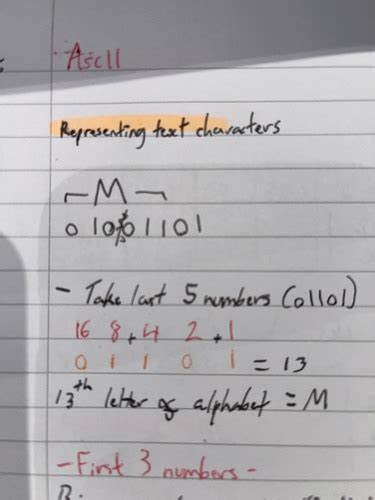 Ascll
Representing text characters
M
0 10 0 1101
- Take last 5 numbers (01101)
16 8 + 4 2 + 1
0 1 1 0 1 = 13
13th letter of alphabet = M
- First 3 numbers -